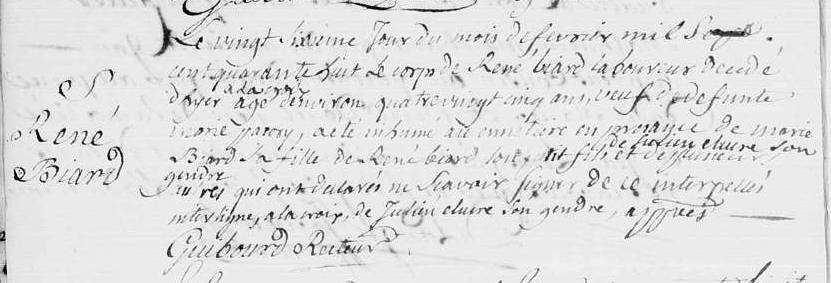 Le vingt sixieme Jour du mois de fevrier mil Sept
cent quarante huit Le corps de René biard laboureur decedé
a la croix
d'hyer agé d'environ quatre vingt cinq ans, veuf de defunte
marie, a été inhumé au cimetiere en presance de marie
de Julien cluire son
Biard sa fille de René biard son petit fils et de plusieurs
gendre
autres qui ont declarés ne Scavoir signer de ce interpellés
interligne, a la croix, de Julien cluire Son gendre, approuvés
Guibourd Recteur
S
René
Biard